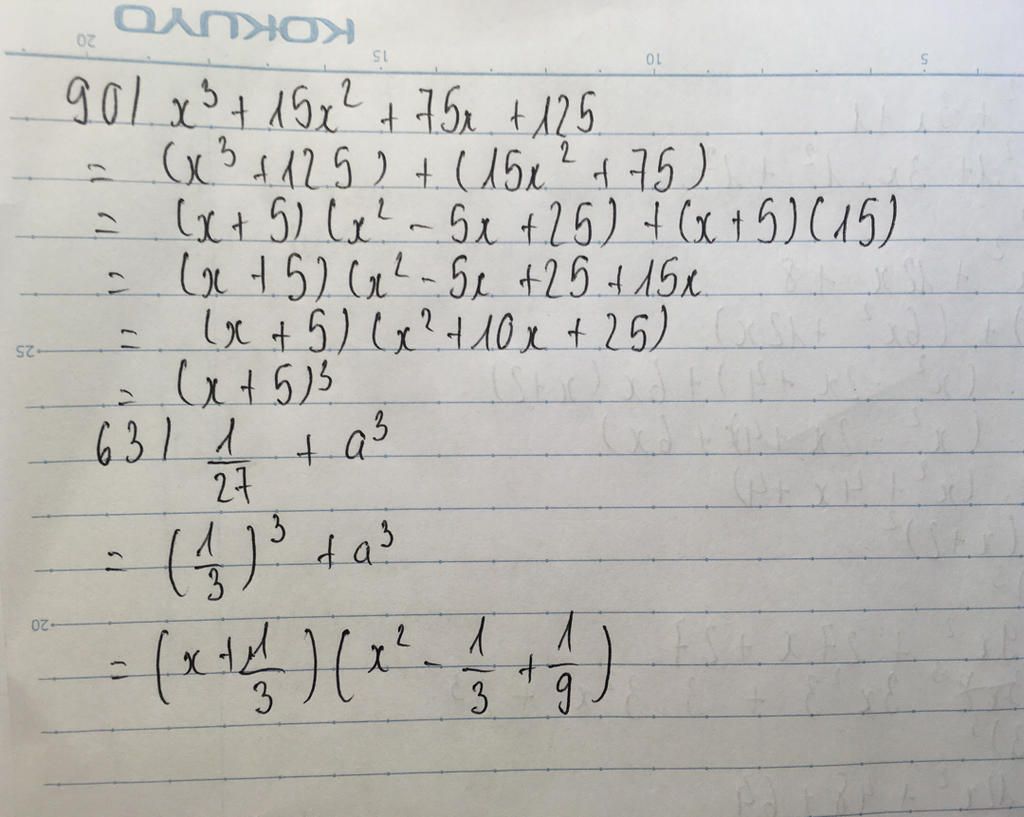 KOKUYO
20 15 10 5
90/ x³ + 15x² + 75x + 125
= (x³ + 125) + (15x² + 75)
= (x + 5) (x² - 5x + 25) + (x + 5) (15)
= (x + 5) (x² - 5x + 25 + 15x
25
= (x + 5) (x² + 10x + 25)
= (x + 5)³
63/ 1/27 + a³
= (1/3)³ + a³
20
= (x + 1/3) (x² - 1/3 + 1/9)